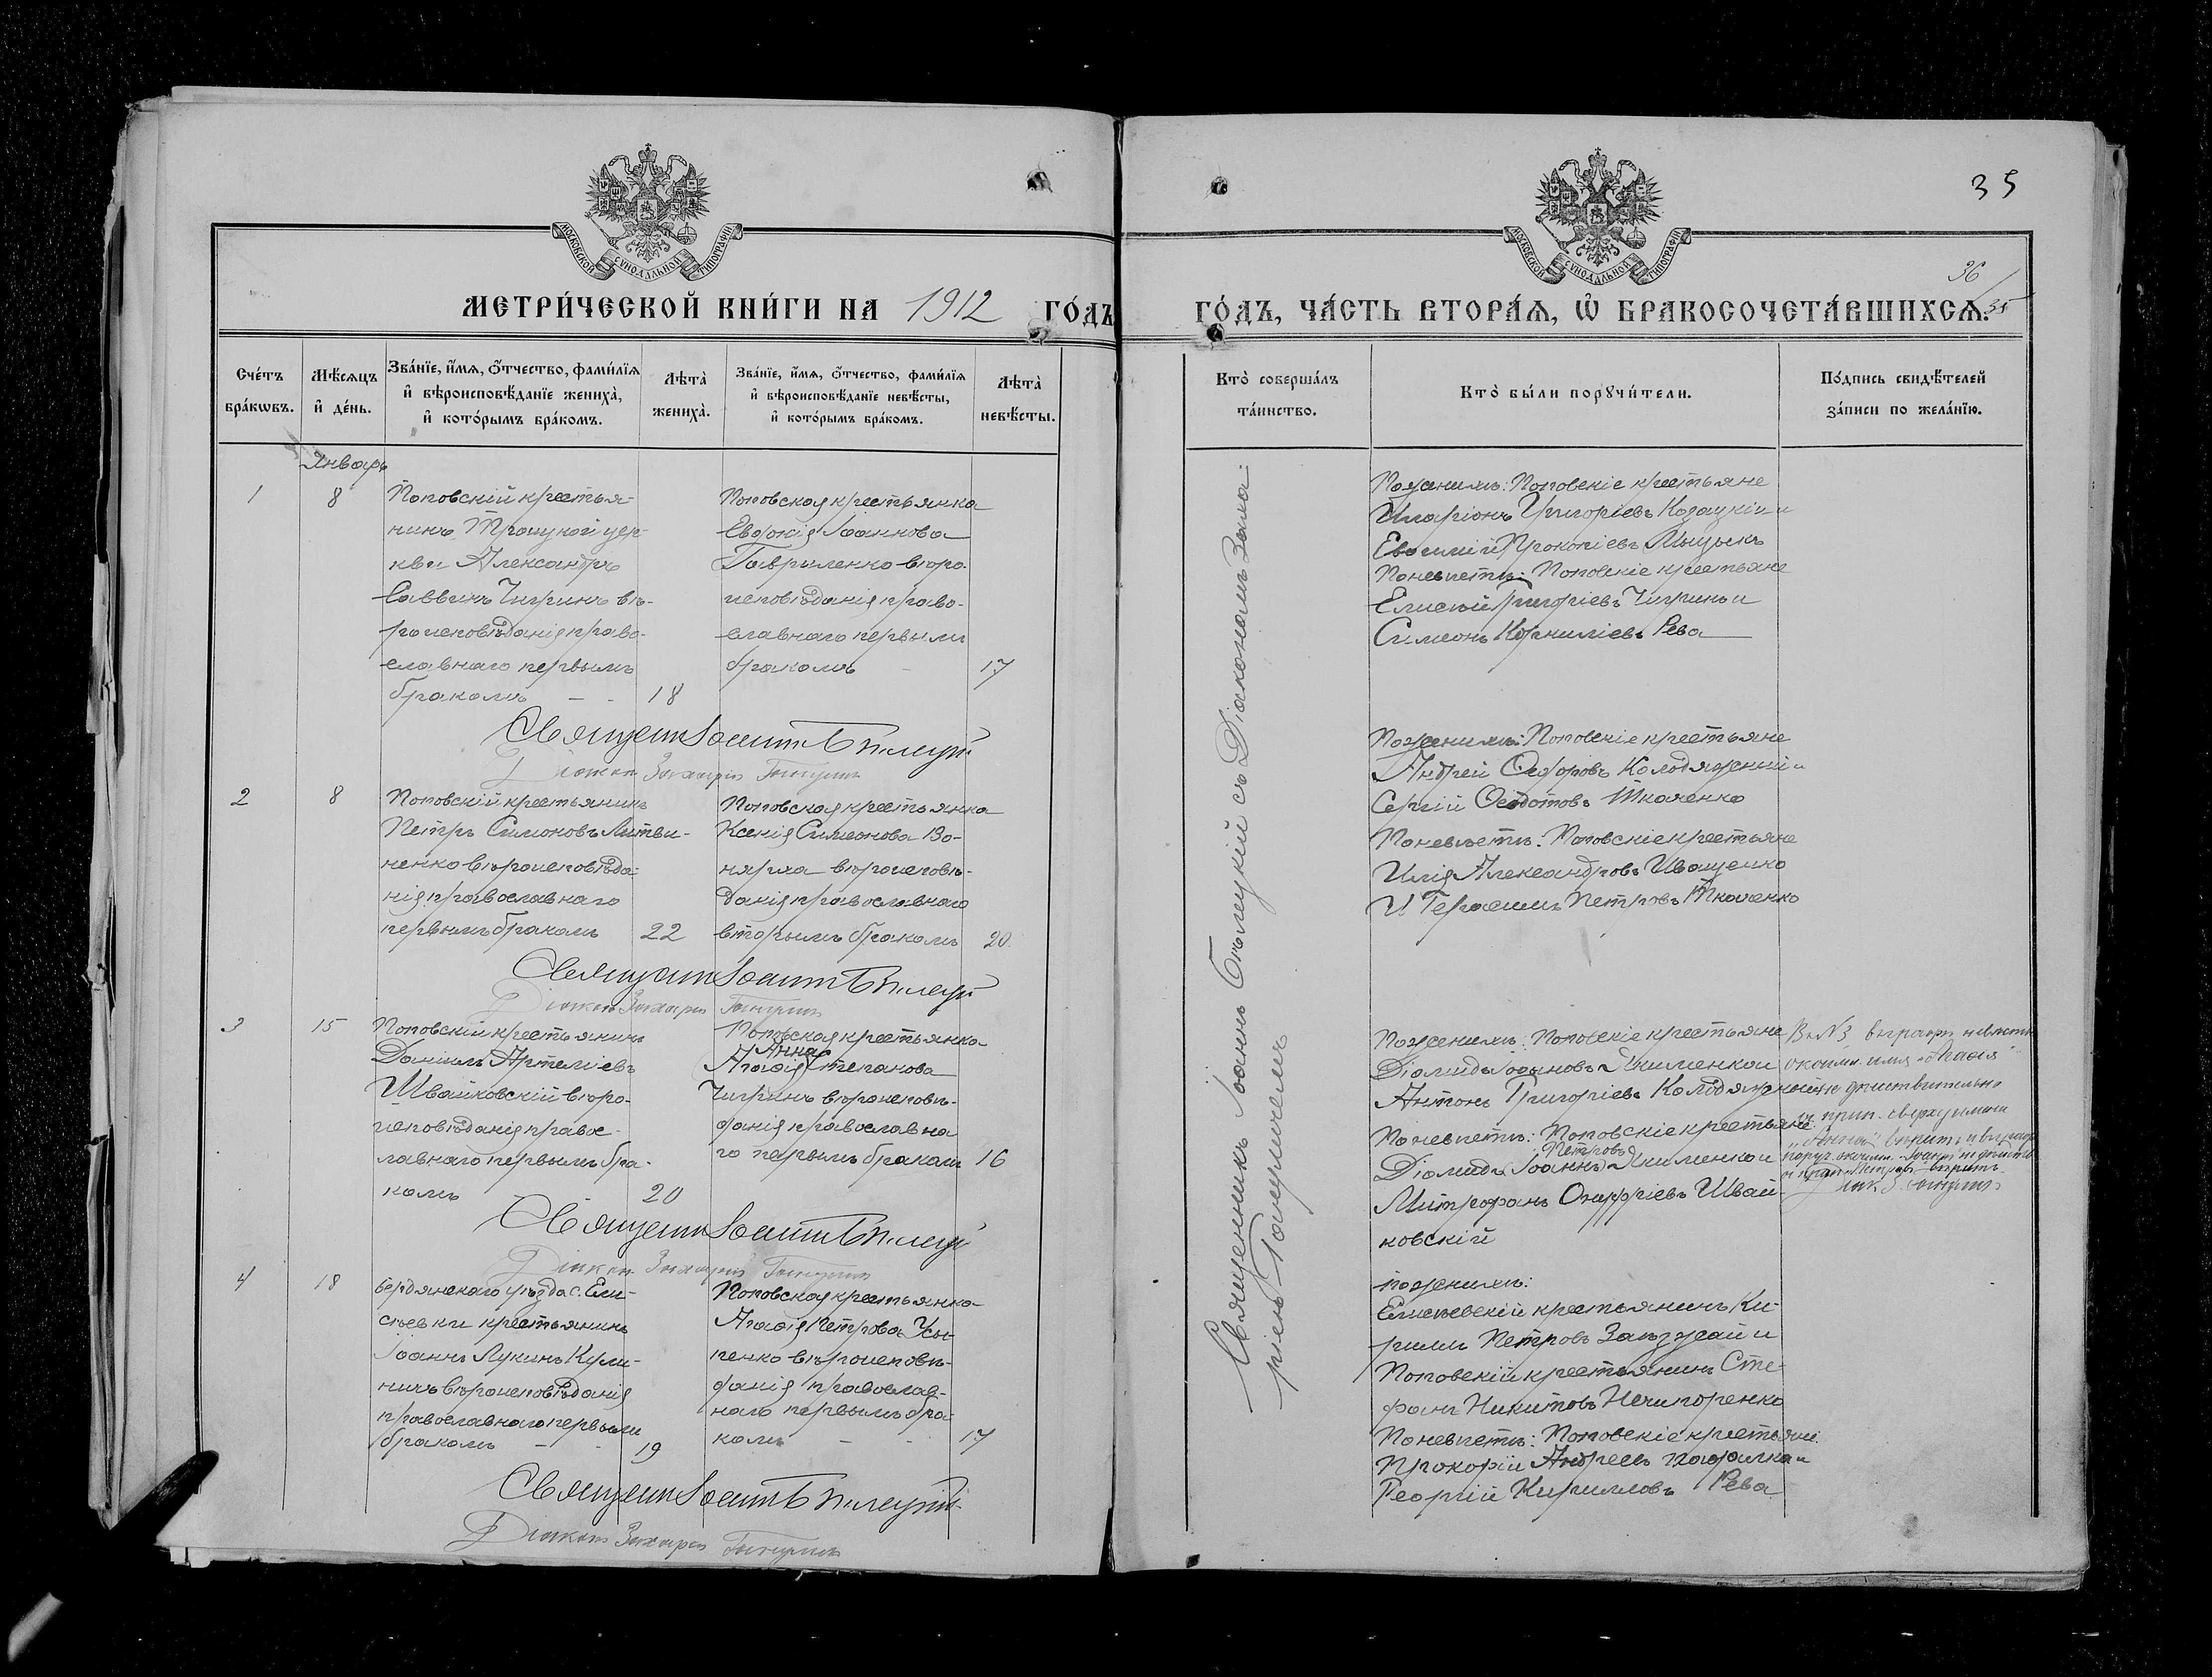 МОСКОВСКОЙ СѴНОДАЛЬНОЙ ТИПОГРАФІИ
МЕТРИ́ЧЕСКОЙ КНИ́ГИ НА 1912 ГО́ДЪ
Сче́тъ бра́кѡвъ.
Мѣ́сяцъ и҆ де́нь.
Зва́нїе, и҆́мѧ, ѻ҆́тчество, фами́лїѧ
и҆ вѣроисповѣ́данїе жениха̀,
и҆ кото́рымъ бра́комъ.
Лѣта̀ жениха̀.
Зва́нїе, и҆́мѧ, ѻ҆́тчество, фами́лїѧ
и҆ вѣроисповѣ́данїе невѣ́сты,
и҆ кото́рымъ бра́комъ.
Лѣта̀ невѣ́сты.
Январь
1
8
Поповскій крестья-
нинъ Троицкой цер-
кви Александръ
Саввинъ Чигринъ вѣ-
роисповѣданія право-
славнаго первымъ
бракомъ - - 18
Поповская крестьянка
Евфимія Іоаннова
Гавриленко вѣро-
исповѣданія право-
славнаго первымъ
бракомъ - 17
Священ Іоаннъ Бѣлецкій
Діаконъ Захарій
2
8
Поповскій крестьянинъ
Петръ Симоновъ Литви-
ненко вѣроисповѣда-
нія православнаго
первымъ бракомъ 22
Поповская крестьянка
Ксенія Симеонова Во-
нярха вѣроисповѣ-
данія православнаго
вторымъ бракомъ 20
Священ Іоаннъ Бѣлецкій
Діаконъ Захарій
3
15
Поповскій крестьянинъ
Даніилъ Артеміевъ
Швайковскій вѣро-
исповѣданія правос-
лавнаго первымъ бра-
комъ 20
Поповская крестьянка
Анна
Агафія Степанова
Чигринъ вѣроисповѣ-
данія православна
го первымъ бракомъ 16
Священ Іоаннъ Бѣлецкій
Діаконъ Захарій
4
18
Бердянскаго уѣзда с. Ели-
сѣевки крестьянинъ
Іоаннъ Лукинъ Кули-
ничъ вѣроисповѣданія
православнаго первымъ
бракомъ - - 19
Поповская крестьянка
Агафія Петрова Усы-
пенко вѣроисповѣ-
данія православ-
наго первымъ бра-
комъ - - 17
Священ Іоаннъ Бѣлецкій
Діаконъ Захарій
35
МОСКОВСКОЙ СѴНОДАЛЬНОЙ ТИПОГРАФІИ
36
35
ГО́ДЪ, ЧА́СТЬ ВТОРА́Ѧ, Ѡ҆ БРАКОСОЧЕТА́ВШИХСѦ.
Кто̀ соверша́лъ та́инство.
Кто̀ бы́ли порꙋчи́тели.
По́дпись свидѣ́телей
за́писи по жела́нїю.
Священникъ Іоаннъ Бѣлецкій съ Діакономъ Заха-
ріемъ
По женихѣ: Поповскіе крестьяне
Иларіонъ Григоріевъ Козацкій и
Евсигній Прокопіевъ Мыцыкъ
По невѣстѣ: Поповскіе крестьяне
Елисѣй Григоріевъ Чигринъ и
Симеонъ Корниліевъ Рева
По женихѣ: Поповскіе крестьяне
Андрей Ѳедоровъ Колодяжный и
Сергій Ѳеодотовъ Ткаченко
По невѣстѣ: Поповскіе крестьяне
Илія Александровъ Иващенко
и Герасимъ Петровъ Ткаченко
По женихѣ: Поповскіе крестьяне
Діомидъ Іоанновъ Якименко и
Антонъ Григоріевъ Колодяжный
По невѣстѣ: Поповскіе крестьяне
Петровъ
Діомидъ Іоаннъ Якименко и
Митрофанъ Онуфріевъ Швай-
ковскій
В № 3 въ графѣ невѣсты
имя „Агафія"
не дѣйствительно
прип. сверху имя
„Анна" вѣрить
„Петровъ" вѣрить
По женихѣ:
Елисѣевскій крестьянинъ Ки-
риллъ Петровъ и
Поповскій крестьянинъ Сте-
фанъ Никитовъ Нечипоренко
По невѣстѣ: Поповскіе крестьяне
Прокопій Андреевъ и
Георгій Кирилловъ Рева